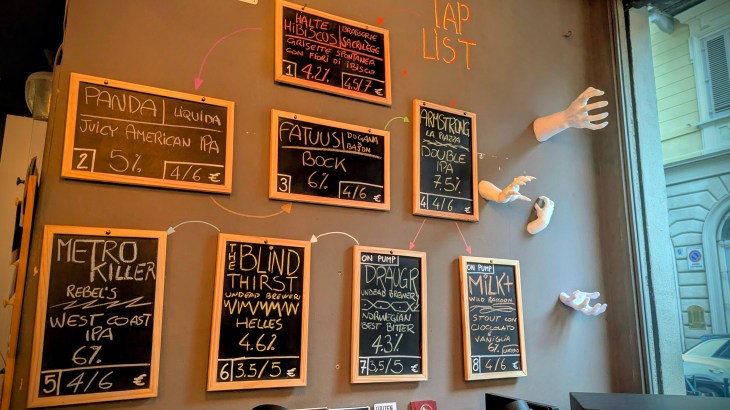 TAP
LIST
HALTE
HIBISCUS
BRASSERIE
SACRILEGE
GRISETTE SPONTANEA
CON FIORI DI IBISCO
1 4.2% 4.5/7 €
PANDA LIQUIDA
JUICY AMERICAN IPA
2 5% 4/6 €
FATUUS DOGANA
BAJON
BOCK
3 6% 4/6 €
ARMSTRONG
LA PIAZZA
DOUBLE
IPA
7.5%
4 4/6 €
METRO
KILLER
REBEL'S
WEST COAST
IPA
6%
5 4/6 €
THE BLIND
THIRST
UNDEAD BREWERY
HELLES
4.6%
6 3.5/5 €
ON PUMP
DRAUGR
UNDEAD BREWERY
NORWEGIAN
BEST BITTER
4.3%
7 3.5/5 €
ON PUMP
MILK+
WILD RACCOON
STOUT CON
CIOCCOLATO
E VANIGLIA
6%
8 4/6 €